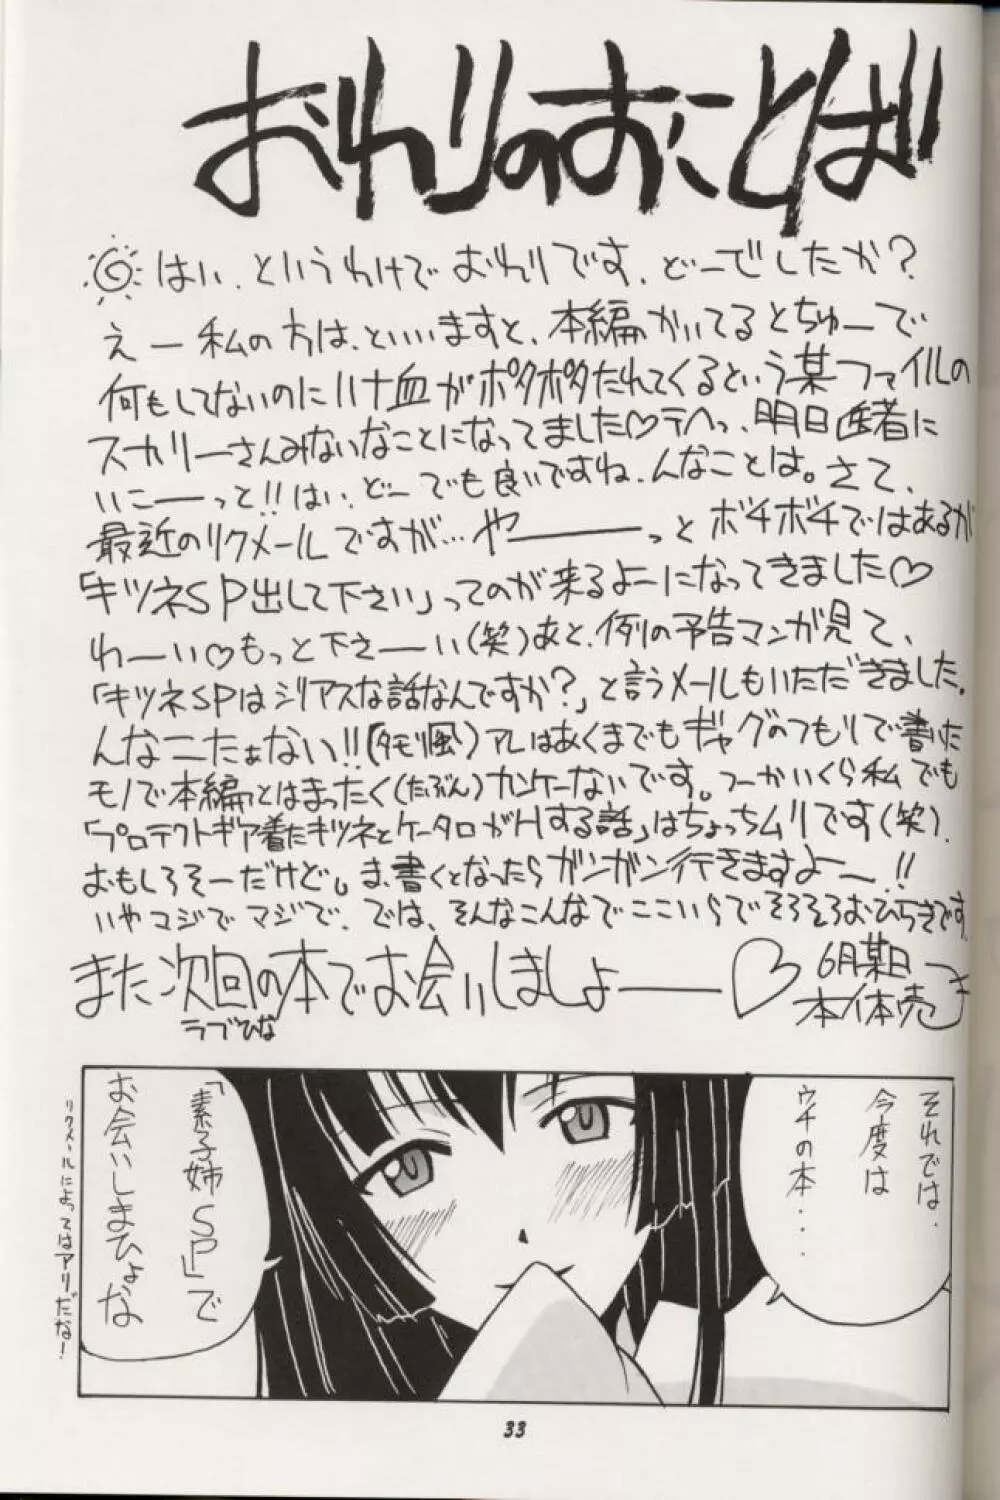 おわりのおことば
はい、というわけでおわりです。どーでしたか?
えー私の方は、といいますと、本編かいてるとちゅーで
何もしてないのにハナ血がポタポタたれてくるという某ファイルの
スカリーさんみないなことになってました♡テヘっ、明日医者に
いこーーっと!!はい、どーでも良いですね、んなことは。さて、
最近のリクメールですが…やーーーっとボチボチではあるが
「キツネSP出して下さい」ってのが来るよーになってきました♡
わーーい♡もっと下さーーい(笑)あと、例の予告マンガ見て、
「キツネSPはシリアスな話なんですか?」と言うメールもいただきました。
んなこたぁない!!(タモリ風)アレはあくまでもギャグのつもりで書いた
モノで本編とはまったく(たぶん)カンケーないです。つーかいくら私でも
「プロテクトギア着たキツネとケータロがHする話」はちょっちムリです(笑)。
おもしろそーだけど。ま、書くとなったらガンガン行きますよー!!
いやマジでマジで。では、そんなこんなでここいらでそろそろおひらきです。
また次回の本でお会いしましょーーー♡
ラブひな
6月某日
本体売
それでは、
今度は
ウチの本・・・
「素子姉SP」で
お会いしまひょな
リクメールによってはアリだな!
33